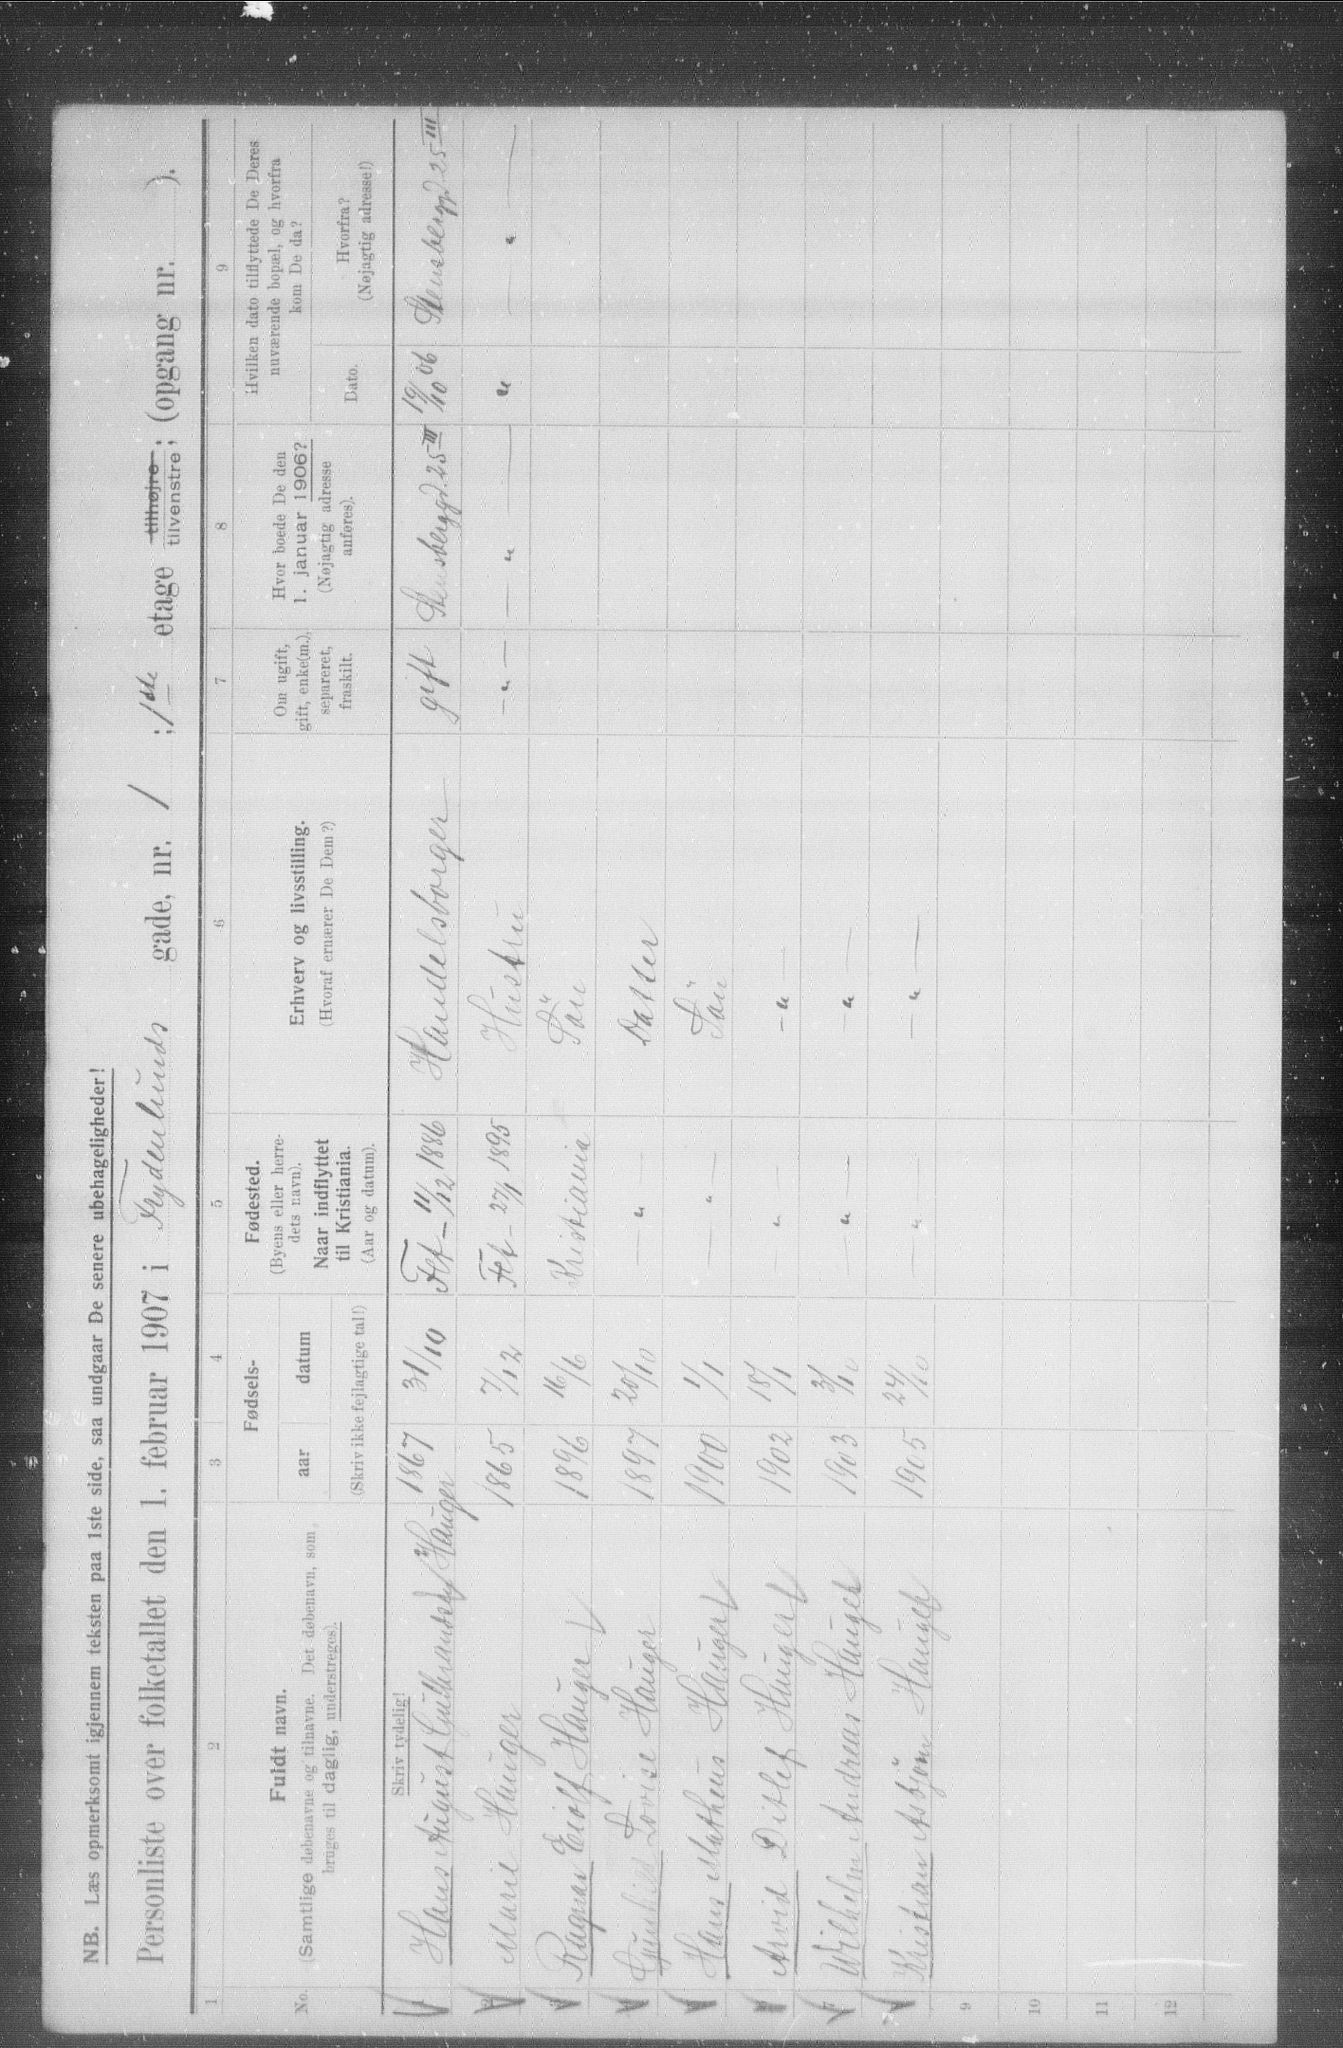 NB. Læs opmerksomt igjennem teksten paa 1ste side, saa undgaar De senere ubehageligheder!
Personliste over folketallet den 1. februar 1907 i Frydenlunds gade, nr. 1 ; 1ste etage tilhøjre tilvenstre; (opgang nr. ).
1 2 3 4 5 6 7 8 9
No.
Fuldt navn.
(Samtlige døbenavne og tilnavne. Det døbenavn, som
bruges til daglig, understreges).
Skriv tydelig!
Fødsels-
aar datum
(Skriv ikke fejlagtige tal!)
Fødested.
(Byens eller herre-
dets navn).
Naar indflyttet
til Kristiania.
(Aar og datum).
Erhverv og livsstilling.
(Hvoraf ernærer De Dem?)
Om ugift,
gift, enke(m.),
separeret,
fraskilt.
Hvor boede De den
1. januar 1906?
(Nøjagtig adresse
anføres).
Hvilken dato tilflyttede De Deres
nuværende bopæl, og hvorfra
kom De da?
Dato.
Hvorfra?
(Nøjagtig adresse!)
Hans August Gulbrandsen Hauger 1867 31/10 Fet - 11/12 1886 Handelsborger gift Stensberggd. 25 III 19/10 06 Stensberggd 25 III
Marie Hauger 1865 7/12 Fet - 27/1 1895 Hustru - " - - " - " - " -
Ragnar Eiolf Hauger 1896 16/6 Kristiania Sön
Gunhild Lovise Hauger 1897 20/10 - " - Datter
Hans Mathæus Hauger 1900 1/1 - " - Sön
Arvid Ditlef Hauger 1902 18/1 " - " -
Wilhelm Andreas Hauger 1903 3/10 - " - - " -
Kristian Asbjörn Hauger 1905 24/10 - " - - " -
9
10
11
12